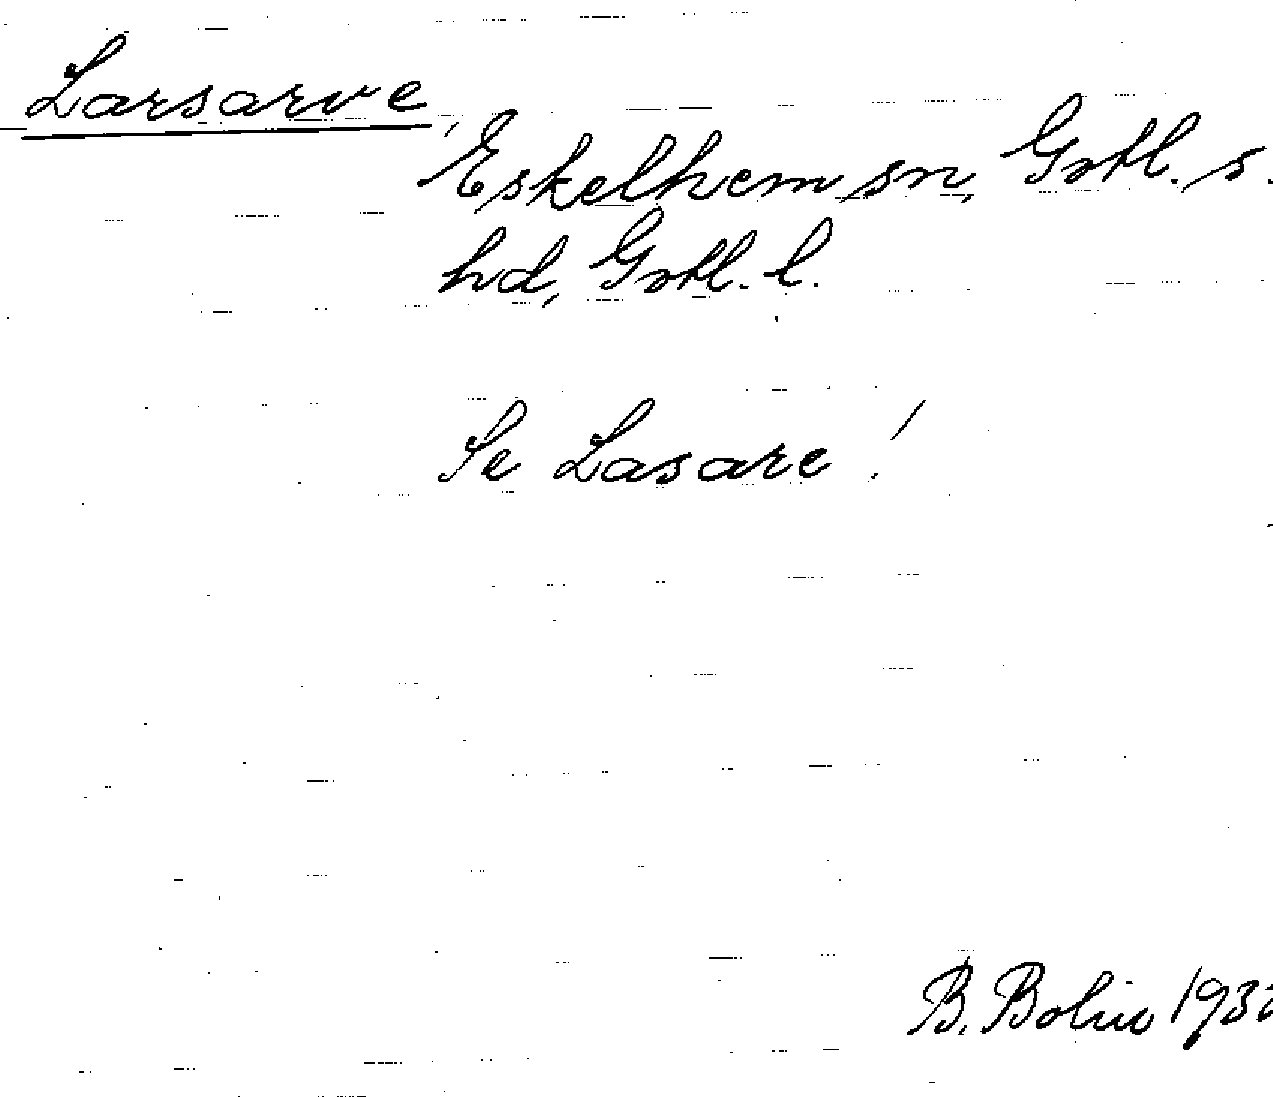 Larsarve,
Eskelhem sn, Gotl. s.
hd, Gotl. l.
Se Lasare!
B. Bolin